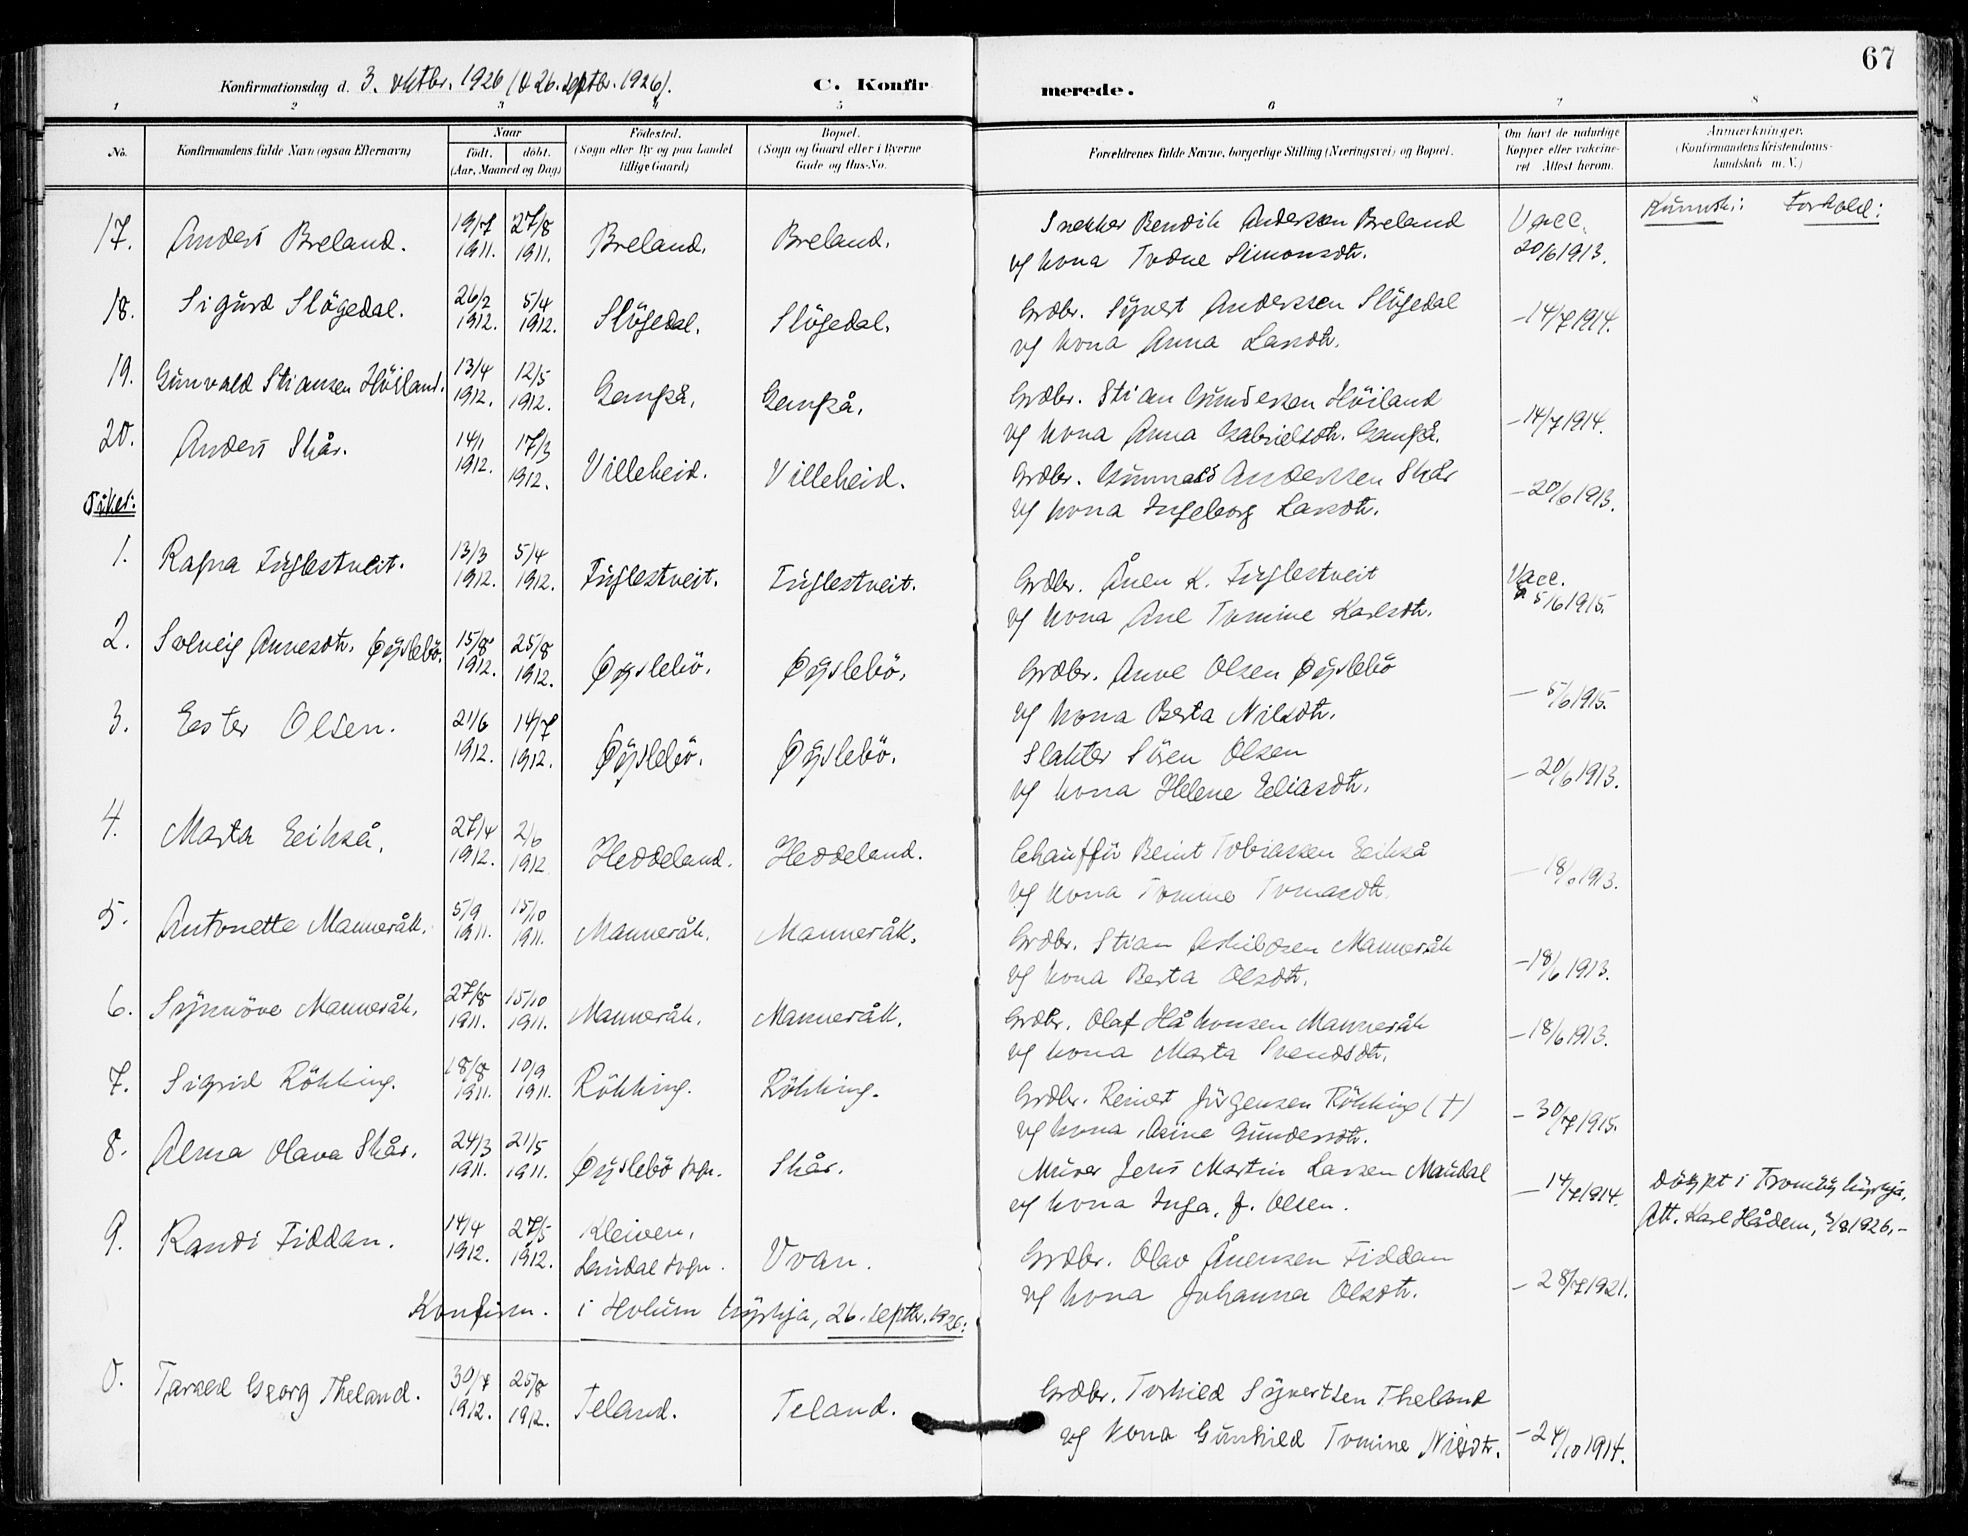 67
Konfirmationsdag d. 3. oktbr. 1926 (& 26. septbr. 1926).
C. Konfir
merede.
1 2 3 4 5 6 7 8
No.
Konfirmandens fulde Navn (ogsaa Efternavn)
Naar
født. døbt.
(Aar, Maaned og Dag)
Fødested.
(Sogn eller By og paa Landet
tillige Gaard)
Bopæl.
(Sogn og Gaard eller i Byerne
Gade og Hus-No.
Forældrenes fulde Navne, borgerlige Stilling (Næringsvei) og Bopæl.
Om havt de naturlige
Kopper eller vakcine-
ret Attest herom.
Anmærkninger.
(Konfirmandens Kristendoms-
kundskab m. V.)
Kunnsk: Forhold:
17. Anders Breland. 19/7 1911. 27/8 1911. Breland. Breland. Snekker Bendik Anderssen Breland
og kona Todne Simonsdtr. Vacc. 20/6 1913.
18. Sigurd Slögedal. 26/2 1912. 5/4 1912. Slögedal. Slögedal. Grdbr. Syvert Anderssen Slögedal
og kona Anna Larsdtr. – 14/7 1914.
19. Gunvald Stiansen Höiland. 13/4 1912. 12/5 1912. Gangså. Gangså. Grdbr. Stian Gunderssen Höiland
og kona Anna Gabrielsdtr. Gangså. – 14/7 1914.
20. Anders Skår. 14/1 1912. 17/3 1912. Villeheid. Villeheid. Grdbr. Gunnald Anderssen Skår
og kona Ingeborg Larsdtr. – 20/6 1913.
Piker:
1. Ragna Fuglestveit. 13/3 1912. 5/4 1912. Fuglestveit. Fuglestveit. Grdbr. Ånen K. Fuglestveit
og kona Ane Tomine Karlsdtr. Vacc. 5/6 1915.
2. Solveig Annesdtr. Øyslebö. 15/8 1912. 25/8 1912. Øyslebö. Øyslebö. Grdbr. Anve Olsen Øyslebö
og kona Berta Nilsdtr. – 5/6 1915.
3. Ester Olsen. 21/6 1912. 14/7 1912. Øyslebö. Øyslebö. Slakter Sören Olsen
og kona Helene Eliasdtr. – 20/6 1913.
4. Marta Eikså. 27/4 1912. 2/6 1912 Heddeland. Heddeland. Chaufför Beint Tobiassen Eikså
og kona Tomine Tomasdtr. – 18/6 1913.
5. Antonette Manneråk. 5/9 1911. 15/10 1911. Manneråk. Manneråk. Grdbr. Stian Askildsen Manneråk
og kona Berta Olsdtr. – 18/6 1913.
6. Synnöve Manneråk. 27/8 1911. 15/10 1911. Manneråk. Manneråk. Grdbr. Olaf Håkonsen Manneråk
og kona Marta Svendsdtr. – 18/6 1913.
7. Sigrid Rökking. 18/8 1911. 10/9 1911. Rökking. Rökking. Grdbr. Reinert Jörgensen Rökking (†)
og kona Asine Gundersdtr. – 30/7 1915.
8. Alma Olava Skår. 24/3 1911. 21/5 1911. Øyslebö sogn. Skår. Murer Jens Martin Larsen Mandal
og kona Inga, f. Olsen. – 14/7 1914. Döypt i Tromöy kyrkja.
Att. Karl Hådem, 3/8 1926. –
9. Randi Fiddan. 14/4 1912. 27/5 1912. Kleiven, Laudal sogn. Uvan. Grdbr. Olav Ånensen Fiddan
og kona Johanna Olsdtr. – 28/7 1921.
Konfirm. i Holum kyrkja, 26. septbr. 1926:
0. Tarald Georg Theland. 30/7 1912. 25/8 1912. Teland. Teland. Grdbr. Torkild Syvertsen Theland
og kona Gunhild Tomine Nilsdtr. – 24/10 1914.